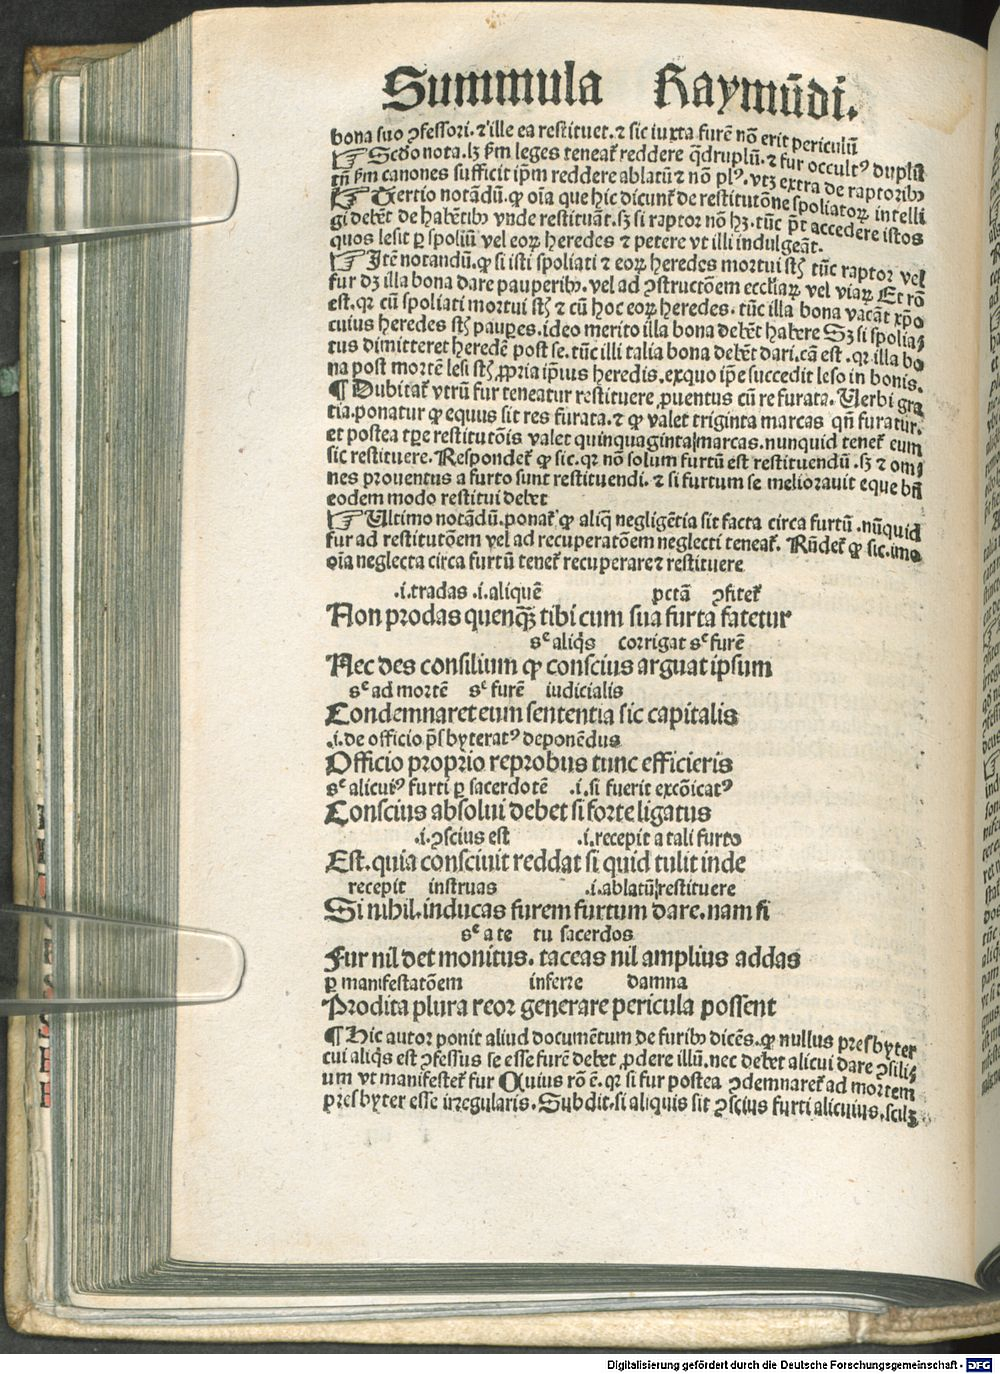 Summula Raymūdi.
bona suo ꝯfessori. ⁊ ille ea restituet. ⁊ sic iuxta furē nō erit periculū
☞ Scďo nota. lꝫ ẜm leges teneat᷑ reddere q̄druplū. ⁊ fur occultꝰ duplū
tn̄ ẜm canones sufficit ip̄m reddere ablatū ⁊ nō plꝰ. vtꝫ extra de raptoribꝰ
☞ Tertio notādū. ꝙ oīa que hic dicunt᷑ de restitutōne spoliatoꝝ intelli
gi debēt de habētibꝰ vnde restituāt. sꝫ si raptor nō hꝫ. tūc pōt accedere istos
quos lesit ꝑ spoliū vel eoꝝ heredes ⁊ petere vt illi indulgeāt.
☞ Itē notandū. ꝙ si isti spoliati ⁊ eoꝝ heredes mortui st̄ tūc raptor vel
fur dꝫ illa bona dare pauperibꝰ. vel ad ꝯstructōem eccliaꝝ vel viaꝝ Et rō
est. qꝛ cū spoliati mortui st̄ ⁊ cū hoc eoꝝ heredes. tūc illa bona vacāt xp̄o
cuius heredes st̄ pauꝑes. ideo merito illa bona debēt habere Sꝫ si spolia⸗
tus dimitteret heredē post se. tūc illi talia bona debēt dari. cā est. qꝛ illa bo
na post mortē lesi st̄ ꝓpria ip̄ius heredis. exquo ip̄e succedit leso in bonis.
¶ Dubitat᷑ vtrū fur teneatur restituere ꝓuentus cū re furata. Uerbi gra
tia. ponatur ꝙ equus sit res furata. ⁊ ꝙ valet triginta marcas qn̄ furatur.
et postea tꝑe restitutōis valet quinquaginta marcas. nunquid tenet᷑ eum
sic restituere. Respondet᷑ ꝙ sic. qꝛ nō solum furtū est restituendū. sꝫ ⁊ om⸗
nes prouentus a furto sunt restituendi. ⁊ si furtum se meliorauit eque bn̄
eodem modo restitui debet
☞ Ultimo notādū. ponat᷑ ꝙ aliq̄ negligētia sit facta circa furtū. nūquid
fur ad restitutōem vel ad recuperatōem neglecti teneat᷑. Rn̄det᷑ ꝙ sic. imo
oīa neglecta circa furtū tenet᷑ recuperare ⁊ restituere
.i. tradas .i. aliquē pctā ꝯfitet᷑
Non prodas quenqꝫ tibi cum sua furta fatetur
sᶜ aliq̇s corrigat sᶜ furē
Nec des consilium ꝙ conscius arguat ipsum
sᶜ ad mortē sᶜ furē iudicialis
Condemnaret eum sententia sic capitalis
.i. de officio p̄sbyteratꝰ deponēdus
Officio proprio reprobus tunc efficieris
sᶜ alicuiꝰ furti ꝑ sacerdotē .i. si fuerit excōicatꝰ
Conscius absolui debet si forte ligatus
.i. ꝯscius est .i. recepit a tali furto
Est. quia consciuit reddat si quid tulit inde
recepit instruas .i. ablatū restituere
Si nihil. inducas furem furtum dare. nam si
sᶜ a te tu sacerdos
Fur nil det monitus. taceas nil amplius addas
ꝑ manifestatōem inferre damna
Prodita plura reor generare pericula possent
¶ Hic autor ponit aliud documētum de furibꝰ dicēs. ꝙ nullus presbyter
cui aliq̇s est ꝯfessus se esse furē debet ꝓdere illū. nec debet alicui dare ꝯsili⸗
um vt manifestet᷑ fur Cuius rō ē. qꝛ si fur postea ꝯdemnaret᷑ ad mortem
presbyter esse irregularis. Subdit. si aliquis sit ꝯscius furti alicuius. scilꝫ
Digitalisierung gefördert durch die Deutsche Forschungsgemeinschaft - DFG